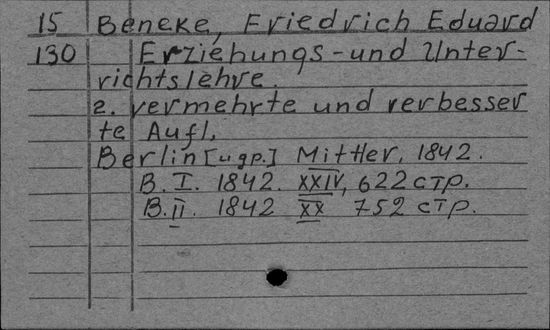 15 Beneke, Friedrich Eduard
130 Erziehungs-und Unter-
richtslehre.
2. vermehrte und verbesser
te Aufl.
Berlin [и др.] Mittler, 1842.
B. I. 1842. XXIV, 622 стр.
B. II. 1842 XX 752 стр.